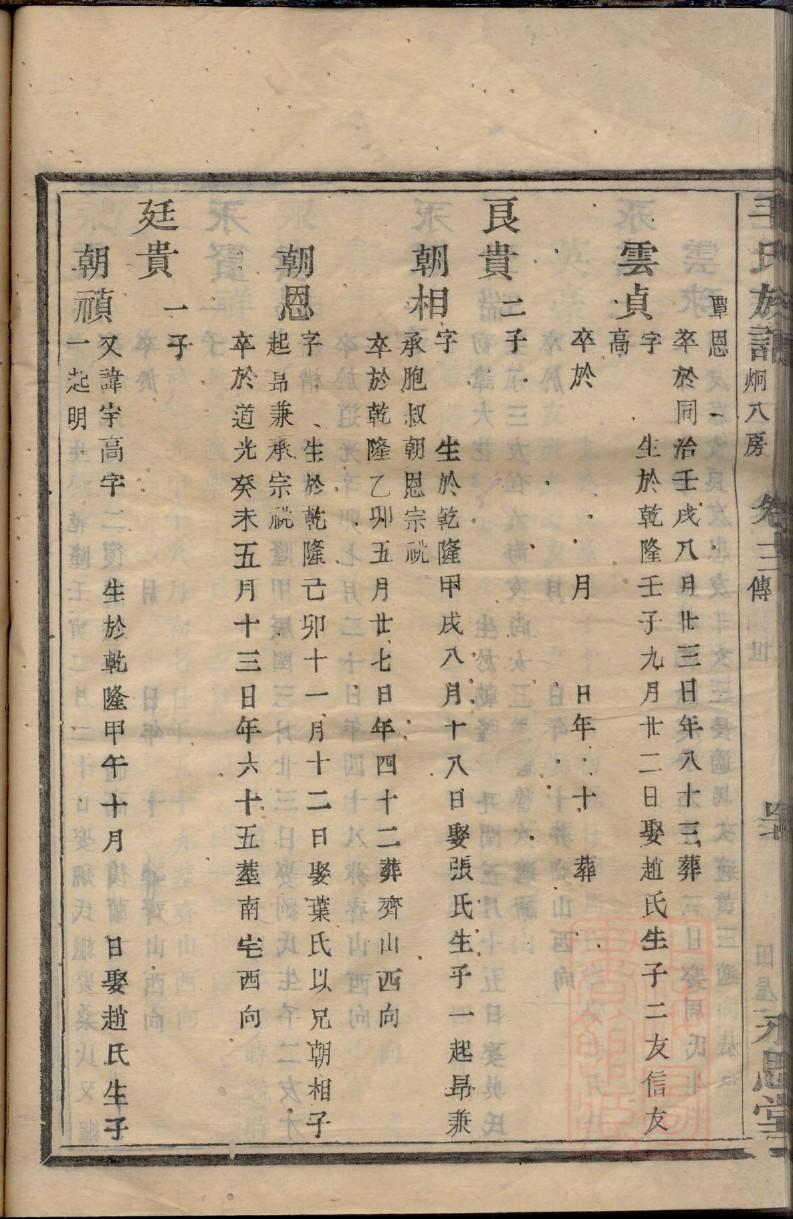 王氏族譜 炯八房 卷二 傳 世
覃恩
卒於同治壬戌八月廿三日年八十三葬
雲貞 字 生於乾隆壬子九月廿二日娶趙氏生子二友信友
高
卒於 月 日年 十 葬
良貴 二子
朝相 字 生於乾隆甲戌八月十八日娶張氏生子一起昴兼
承胞叔朝恩宗祧
卒於乾隆乙卯五月廿七日年四十二葬齊山西向
朝恩 字 生於乾隆己卯十一月十二日娶葉氏以兄朝相子
起昴兼承宗祧
卒於道光癸未五月十三日年六十五塟南宅西向
廷貴 一子
朝頑 又諱宇高字二復 生於乾隆甲午十月 日娶趙氏生子
一起明